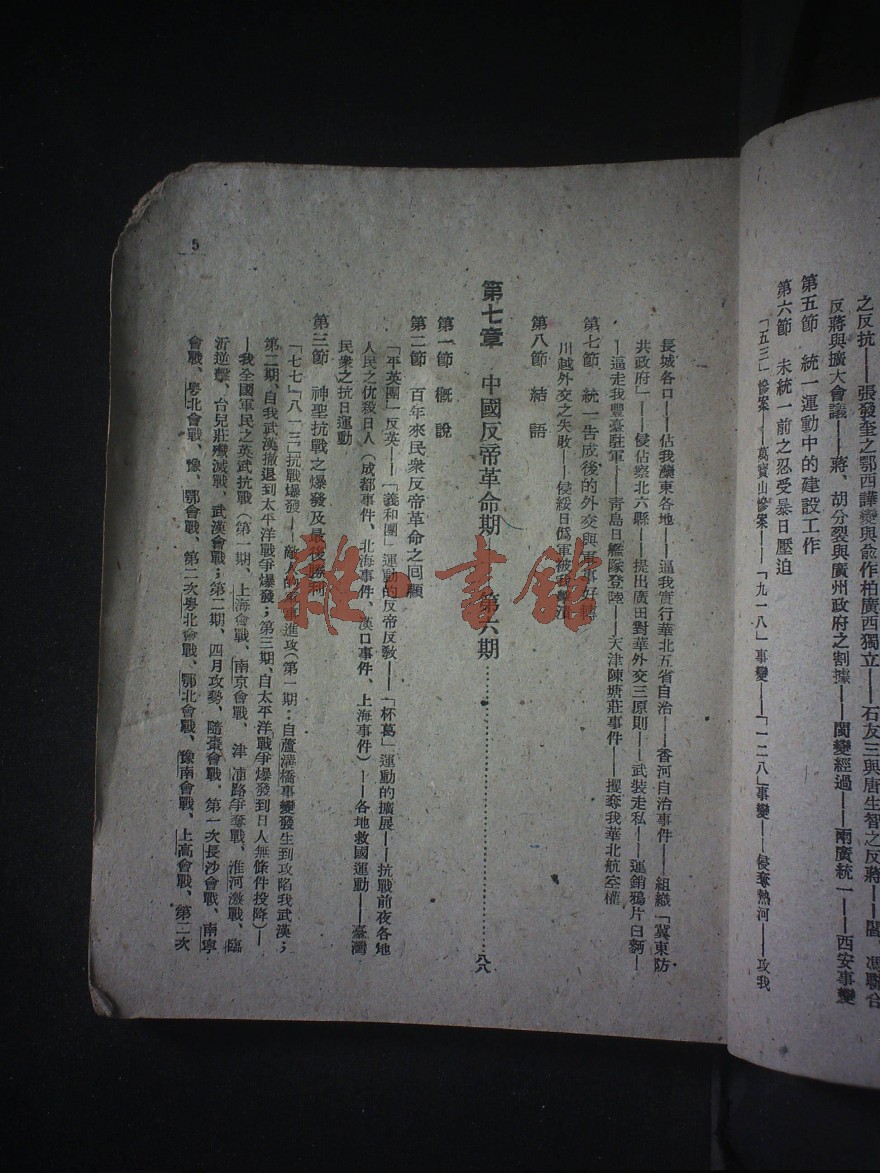 之反抗——張發奎之鄂西譁變與俞作柏廣西獨立——石友三與唐生智之反蔣——閻馮聯合
反蔣與擴大會議——蔣、胡分裂與廣州政府之割據——閩變經過——兩廣統一——西安事變
第五節 統一運動中的建設工作
第六節 未統一前之忍受暴日壓迫
「五三」慘案——萬寶山慘案——「九一八」事變——「一二八」事變——侵奪熱河——攻我
長城各口——佔我灤東各地——逼我實行華北五省自治——香河自治事件——組織「冀東防
共政府」——侵佔察北六縣——提出廣田對華外交三原則——武裝走私——運銷鴉片白麪—
—逼走我豐臺駐軍——青島日艦隊登陸——天津陳塘莊事件——攫奪我華北航空權
第七節 統一告成後的外交與軍事好轉
川越外交之失敗——侵綏日僞軍被我擊潰
第八節 結語
第七章 中國反帝革命期——第六期……八八
第一節 概說
第二節 百年來民衆反帝革命之回顧
「平英團」反英——「義和團」運動的反帝反敎——「杯葛」運動的擴展——抗戰前夜各地
人民之仇殺日人（成都事件、北海事件、漢口事件、上海事件）——各地救國運動——臺灣
民衆之抗日運動
第三節 神聖抗戰之爆發及最後勝利
「七七」「八一三」抗戰爆發——敵人的軍事進攻（第一期：自蘆溝橋事變發生到攻陷我武漢；
第二期、自我武漢撤退到太平洋戰爭爆發；第三期、自太平洋戰爭爆發到日人無條件投降）—
—我全國軍民之英武抗戰（第一期、上海會戰、南京會戰、津浦路爭奪戰、淮河激戰、臨
沂逆擊、台兒莊殲滅戰、武漢會戰；第二期、四月攻勢、隨棗會戰、第一次長沙會戰、南寧
會戰、粵北會戰、豫、鄂會戰、第二次粵北會戰、鄂北會戰、豫南會戰、上高會戰、第二次
5
雜书館